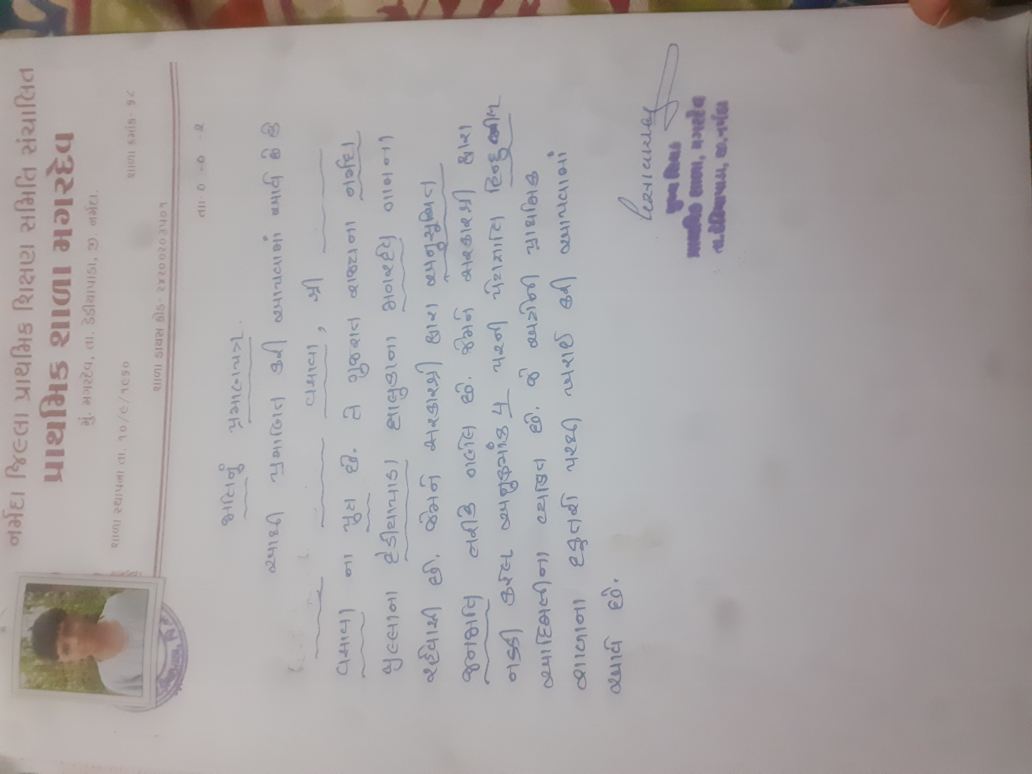 નર્મદા જિલ્લા પ્રાથમિક શિક્ષણ સમિતિ સંચાલિત
પ્રાથમિક શાળા મગરદેવ
મું. મગરદેવ, તા. ડેડીયાપાડા, જી. નર્મદા.
શાળા સ્થાપના તા. ૧૦/૯/૧૯૬૦ શાળા ક્રમાંક- ૬૮
શાળા ડાયસ કોડ- ૨૪૨૦૦૨૦૩૫૦૧
તા. ૦ -૦ -૨
જાતિનું પ્રમાણપત્ર.
આથી પ્રમાણિત કરી આપવામાં આવે છે કે
વસાવા, શ્રી
વસાવા ના પુત્ર છે. તે ગુજરાત રાજ્યના નર્મદા
જીલ્લાના ડેડીયાપાડા તાલુકાના મગરદેવ ગામ ના
રહેવાસી છે. જેમને સરકારશ્રી દ્વારા અનુસૂચિત
જનજાતિ તરીકે ગણેલ છે. જેમને સરકારશ્રી દ્વારા
નક્કી કરેલ અનુક્રમાંક ૫ પરની પેટાજાતિ હિન્દુ ભીલ
આદિવાસીના વ્યક્તિ છે. જે અત્રેની પ્રાથમિક
શાળાના દફતર પરથી ખરાઈ કરી આપવામાં
આવે છે.
મુખ્ય શિક્ષક
પ્રાથમિક શાળા, મગરદેવ
તા. ડેડીયાપાડા, જી. નર્મદા